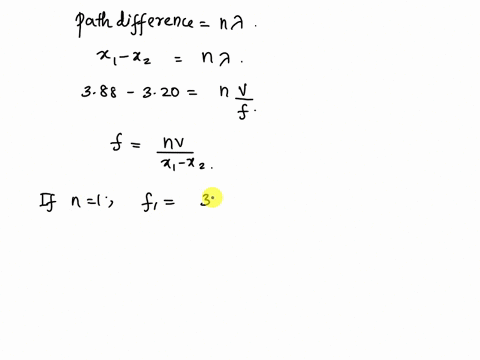 Path difference = nλ.
x₁-x₂ = nλ.
3.88 - 3.20 = n v/f.
f = nv/x₁-x₂.
If n=1;, f₁ = 3.